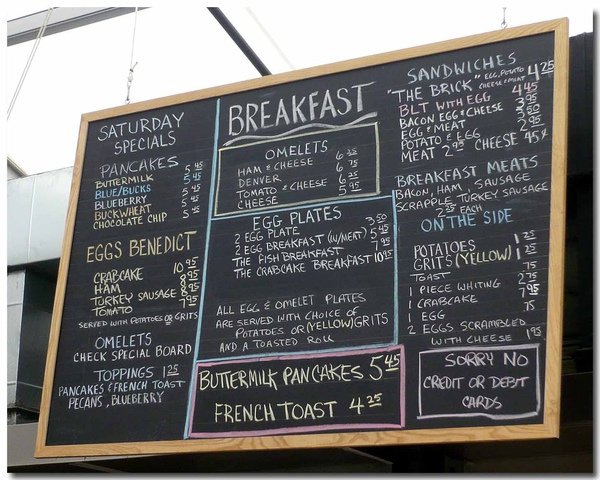 SATURDAY
SPECIALS
PANCAKES
BUTTERMILK 5.45
BLUE/BUCKS 5.45
BLUEBERRY 5.45
BUCKWHEAT 5.45
CHOCOLATE CHIP 5.45
EGGS BENEDICT
CRABCAKE 10.95
HAM 8.95
TURKEY SAUSAGE 8.95
TOMATO 7.95
SERVED WITH POTATOES OR GRITS
OMELETS
CHECK SPECIAL BOARD
TOPPINGS 1.25
PANCAKES & FRENCH TOAST
PECANS, BLUEBERRY
BREAKFAST
OMELETS
HAM & CHEESE 6.25
DENVER 6.75
TOMATO & CHEESE 6.25
CHEESE 5.95
EGG PLATES
2 EGG PLATE 3.50
2 EGG BREAKFAST (W/MEAT) 5.45
THE FISH BREAKFAST 7.95
THE CRABCAKE BREAKFAST 10.95
ALL EGG & OMELET PLATES
ARE SERVED WITH CHOICE OF
POTATOES OR (YELLOW) GRITS
AND A TOASTED ROLL
BUTTERMILK PANCAKES 5.45
FRENCH TOAST 4.25
SANDWICHES
"THE BRICK" EGG, POTATO CHEESE & MEAT 4.25
BLT WITH EGG 4.45
BACON EGG & CHEESE 3.95
EGG & MEAT 3.50
POTATO & EGG 2.95
MEAT 2.95 CHEESE 45¢
BREAKFAST MEATS
BACON, HAM, SAUSAGE
SCRAPPLE, TURKEY SAUSAGE
2.25 EACH
ON THE SIDE
POTATOES 1.25
GRITS (YELLOW) 1.25
TOAST .75
1 PIECE WHITING 2.75
1 CRABCAKE 7.95
1 EGG .75
2 EGGS SCRAMBLED
WITH CHEESE 1.95
SORRY NO
CREDIT OR DEBIT
CARDS